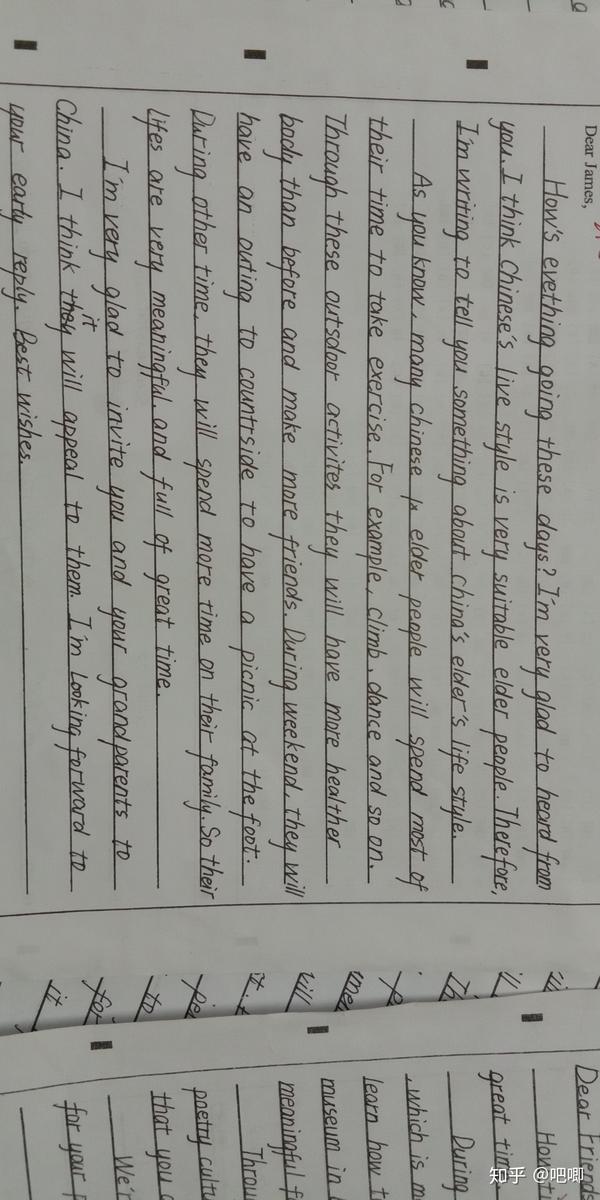 Dear James,
How's evething going these days? I'm very glad to heard from
you. I think Chinese's live style is very suitable elder people. Therefore,
I'm writing to tell you something about china's elder's life style.
As you know, many chinese elder people will spend most of
their time to take exercise. For example, climb, dance and so on.
Through these outsdoor activites they will have more healther
body than before and make more friends. During weekend, they will
have an outing to countrside to have a picnic at the foot.
During other time, they will spend more time on their family. So their
lifes are very meaningful and full of great time.
I'm very glad to invite you and your grandparents to
China. I think it will appeal to them. I'm Looking forward to
your early reply. Best wishes.
Dear Friends
How
great tim
During
, which is m
learn how t
museum in
meaningful f
Throu
poetry cultu
that you c
We'r
for your
知乎 @吧唧